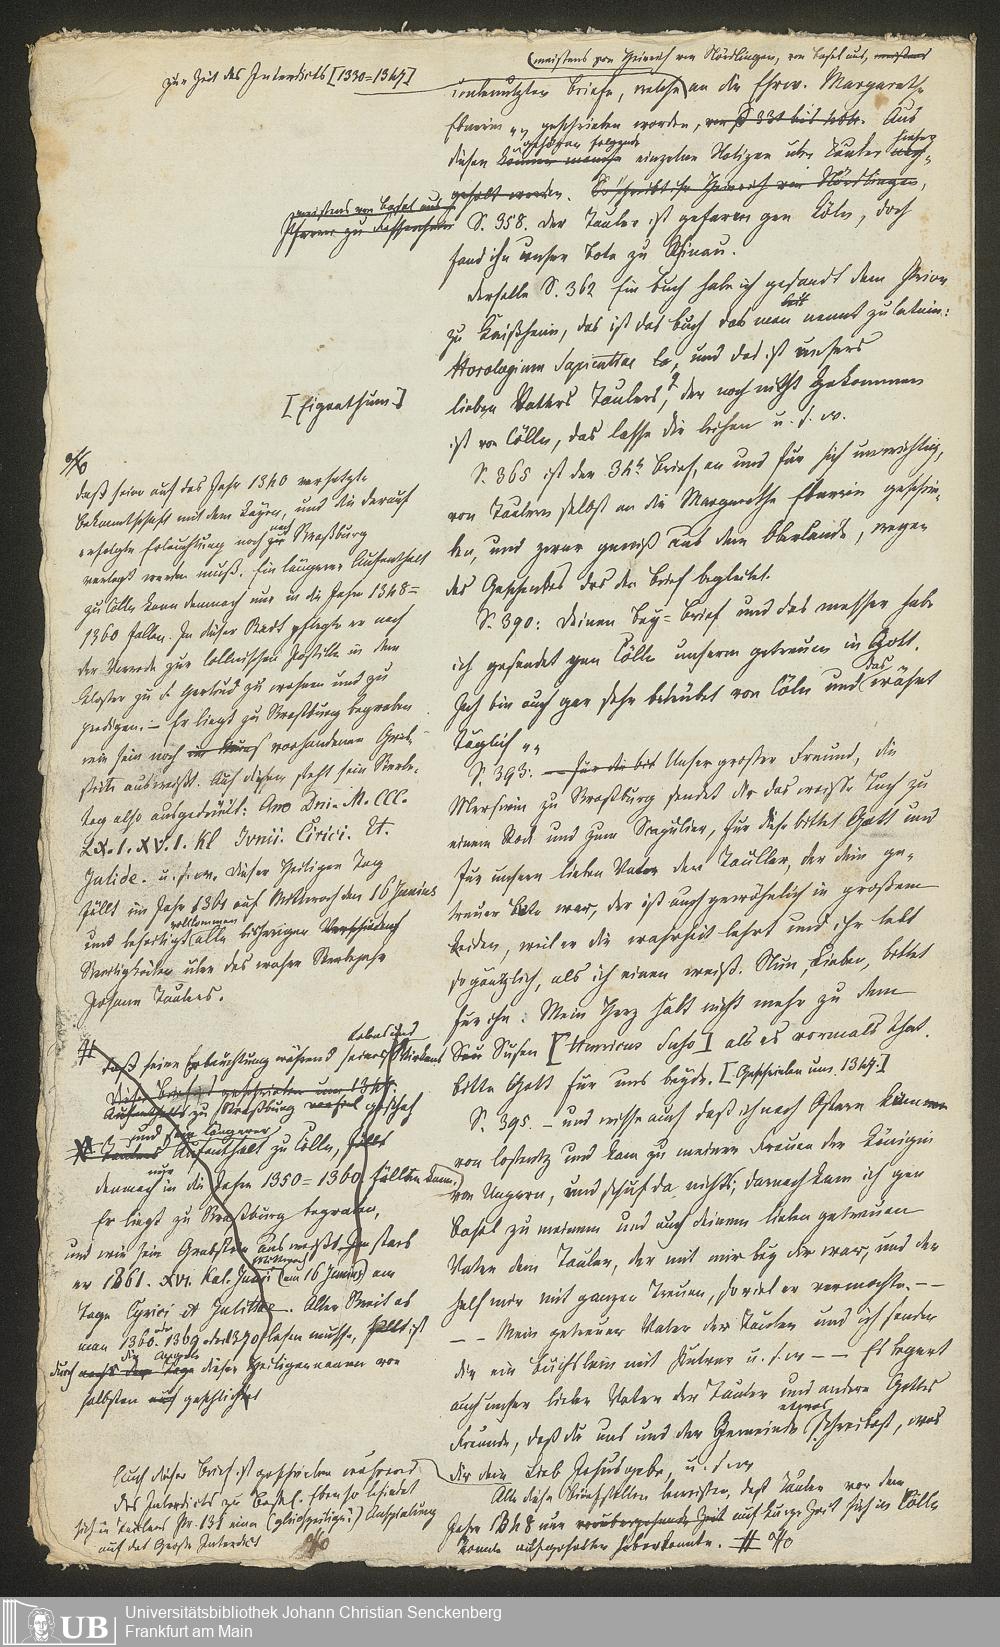 zur Zeit des Interdicts [1330=1347]
(meistens von Heinrich von Nördlingen, von Basel aus, meistens
unbenutzten Briefe, welche an die Ehrw. Margareth
Ebnerin geschrieben worden, von S. 331 bis Aus
diesen können manche einzelne Notizen über Tauler
gehören folgende
geholt werden. So schreibt ihr Heinrich von Nördlingen,
meistens von Basel aus
Pfarrer zu Fessenheim
S. 358. der Tauler ist gefaren gen Cöln, doch
fand ihn unser Bote zu
derselbe S. 362 Ein Buch habe ich gesandt dem Prior
zu Kaißheim, das ist das Buch das man nennt zu latein:
Horologium Sapientiae und das ist unsers
lieben Vatters Taulers, der noch nicht gekommen
[Eigenthum?]
ist von Cölln, das lasse dir leihen u. s. w.
S. 365 ist der 34te Brief, an und für sich unwichtig,
von Taulern selbst an die Margarethe Ebnerin geschrie-
ben, und zwar gewiß aus dem Oberlande, wegen
des Geschenkes das den Brief begleitet.
S. 390: Deinen Bey=Brief und das messer habe
ich gesendet gen Cölln unserm getreuen in Gott.
Ich bin auch gar sehr betrübet von Cöln und das währet
täglich
S. 393: für die bit Unser grosser Freund, die
Merswin zu Straßburg sendet dir das weisse Tuch zu
einem Rock und zum Scapulier, für diese bittet Gott und
für unsern lieben Vater den Tauller, der dein ge-
treuer Bote war, der ist auch gewöhnlich in großem
Leiden, weil er die wahrheit lehrt und ihr lebt
so gäntzlich, als ich einen weiß. Nun, Lieben, bittet
für ihn. Mein Herz hält nicht mehr zu dem
Sou Susen [Henricus Suso] als es vormals that.
bitte Gott für uns beyde. [Geschrieben um 1347.]
S. 395. – und wisse auch daß ich nach Ostern
von Costentz und kam zu meiner Frauen der Königin
von Ungern, und schuf da nichts; darnach kam ich gen
Basel zu meinem und auch deinem lieben getreuen
Vater dem Tauler, der mit mir bey dir war, und der
half mir mit ganzen Treuen, so viel er vermochte. – –
– – Mein getreuer Vater der Tauler und ich senden
dir ein Büchslein mit Pulver u. s. w – – Es begert
auch unser lieber Vater der Tauler und andere Gottes
Freunde, daß du uns und der Gemeinde etwas schreibest, was
dir dein Lieb Jesus gebe, u. s. w
Alle diese Briefstellen beweisen, daß Tauler vor dem
Jahre 1348 nur vorübergehende Zeit auf kurze Zeit sich in Cölln
aufgehalten haben konnte. #
daß seine auf das Jahr 1340 verlegte
bekanntschaft mit dem Layen, und die darauf
erfolgte Erleuchtung noch nach Straßburg
verlegt werden muß. Ein längerer Aufenthalt
zu Cölln kann demnach nur in die Jahre 1348=
1360 fallen. In dieser Stadt pflegte er nach
der Vorrede zur Cöllnischen Postille in dem
Kloster zu S. Gertrud zu wohnen und zu
predigen. – Er liegt zu Straßburg begraben
wie sein noch vorhandener Grab-
stein ausweißt. Auf diesem steht sein Sterbe-
tag also ausgedrückt: Ano Dni. M. CCC.
LX. I. XV. I. Kl Junii. Cirici. Et.
Julide. u. s. w. Dieser Heiligen Tag
fällt im Jahre 1361 auf Mittwoch den 16 Junius
und beseitigt vollkommen alle bisherigen
Streitigkeiten über das wahre Sterbejahr
Johann Taulers.
# daß seine Erleuchtung während seines Lebens und Wirkens
Dieser Brief ist geschrieben um 1347.
Aufenthalts zu Straßburg geschah
und sein längerer
Aufenthalt zu Cölln, fällt
demnach nur in die Jahre 1350=1360 fallen kann.
Er liegt zu Straßburg begraben,
und wie sein Grabstein ausweißt starb
er 1361. XVI. Kal. Junii (am 16 Junius) am
Tage Cyrici et Julittae. Aller Streit ob
man 1360. 1369 oder 1379 lesen müsse, ist
durch die Angabe dieser Heiligennamen von
selbsten geschlichtet
Auch dieser Brief ist geschrieben während
des Interdicts zu Basel. Ebenso befindet
sich in Taulers Pr. 131 eine (gleichzeitige?) Anspielung
auf das Große Interdict
UB
Universitätsbibliothek Johann Christian Senckenberg
Frankfurt am Main